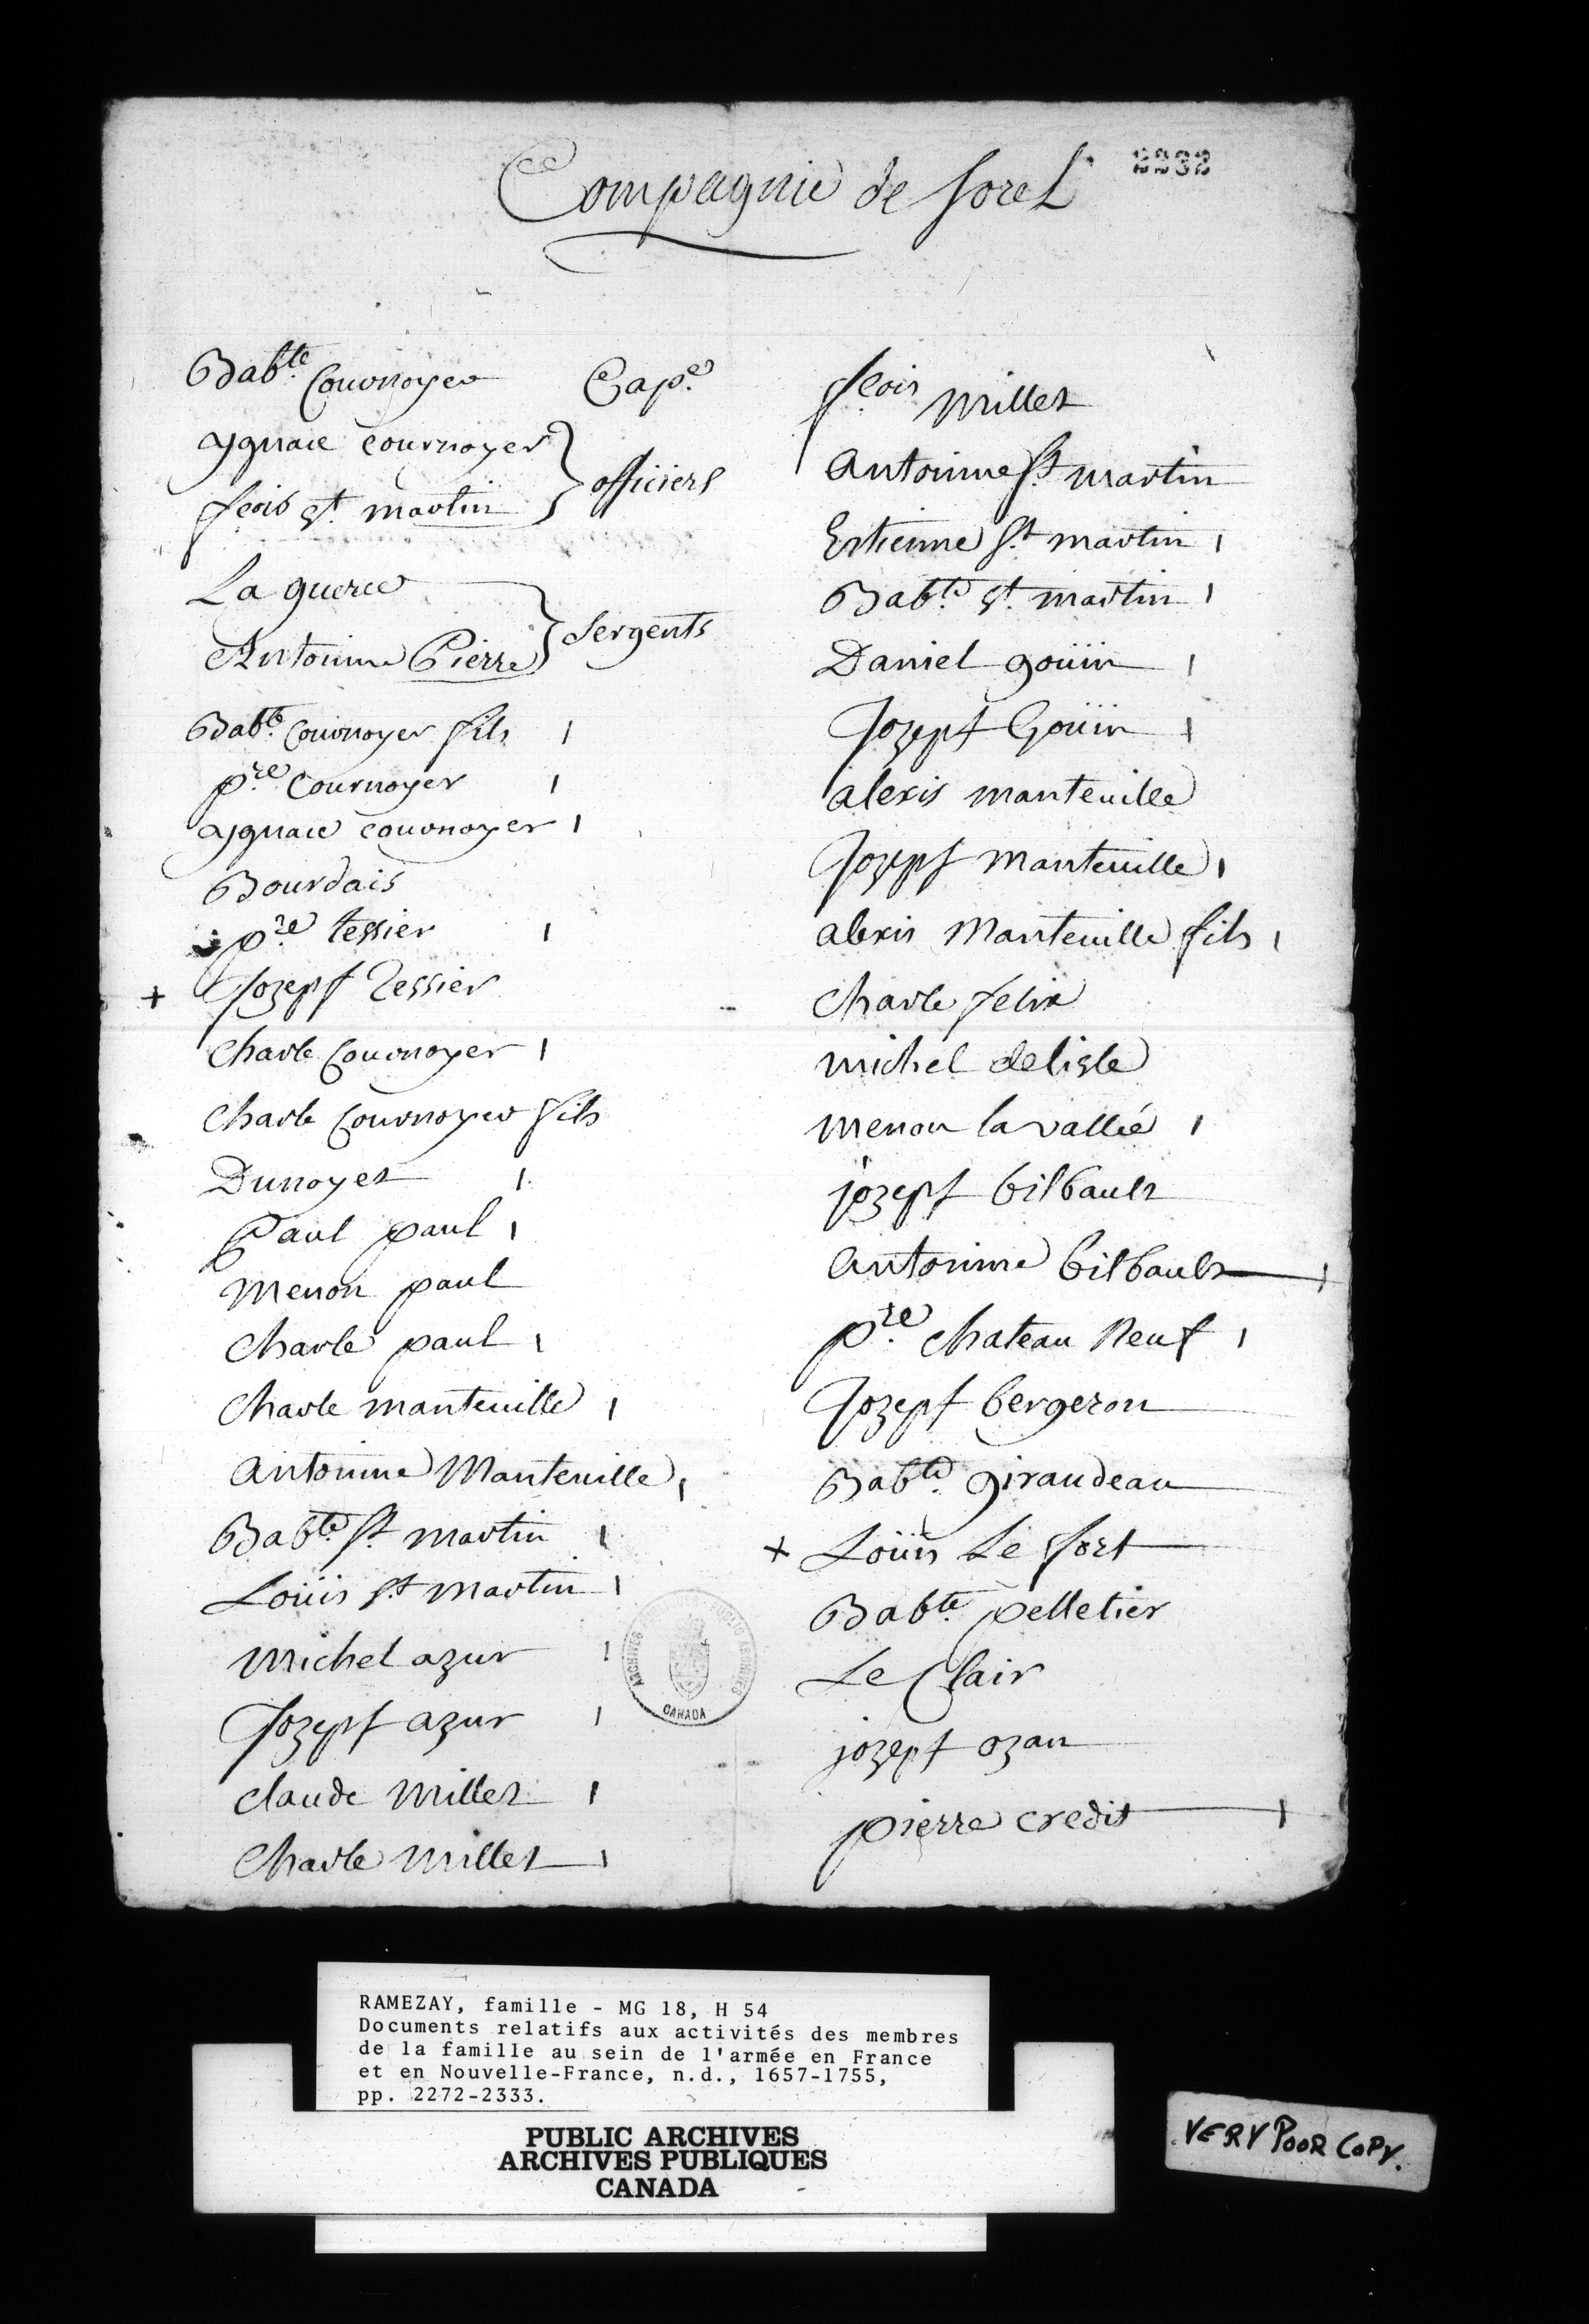 Compagnie de Sorel
2332
Babte. Cournoyer Cape.
ygnace cournoyer
officiers
feois st. martin
La guerce
Sergents
Antoinne Pierre
Babte. Cournoyer fils
pre. Cournoyer
ygnace cournoyer
Bourdais
pre. tessier
+ Jozepf Tessier
Charle Cournoyer
Charle Cournoyer fils
Dunoyer
Paul paul
Menon paul
Charle paul
Charle manteuille
Antoinne Manteuille
Babte. St martin
Loüis St martin
Michel azur
Jozepf azur
Claude Millet
Charle Millet
feois Millet
Antoinne St. martin
Estienne St. martin
Babte. st. martin
Daniel goüin
Jozepf Goüin
alexis manteuille
Jozepf manteuille
alexis Manteuille fils
Charle felix
michel delisle
menon lavallée
jozepf bilbault
Antoinne bilbault
pre. Chateau Neuf
Jozepf bergeron
Babte. giraudeau
+ Loüis Le fort
Babte. pelletier
Le Clair
jozepf ozan
pierre credit
ARCHIVES PUBLIQUES · PUBLIC ARCHIVES
CANADA
RAMEZAY, famille - MG 18, H 54
Documents relatifs aux activités des membres
de la famille au sein de l'armée en France
et en Nouvelle-France, n.d., 1657-1755,
pp. 2272-2333.
PUBLIC ARCHIVES
ARCHIVES PUBLIQUES
CANADA
VERY POOR COPY.